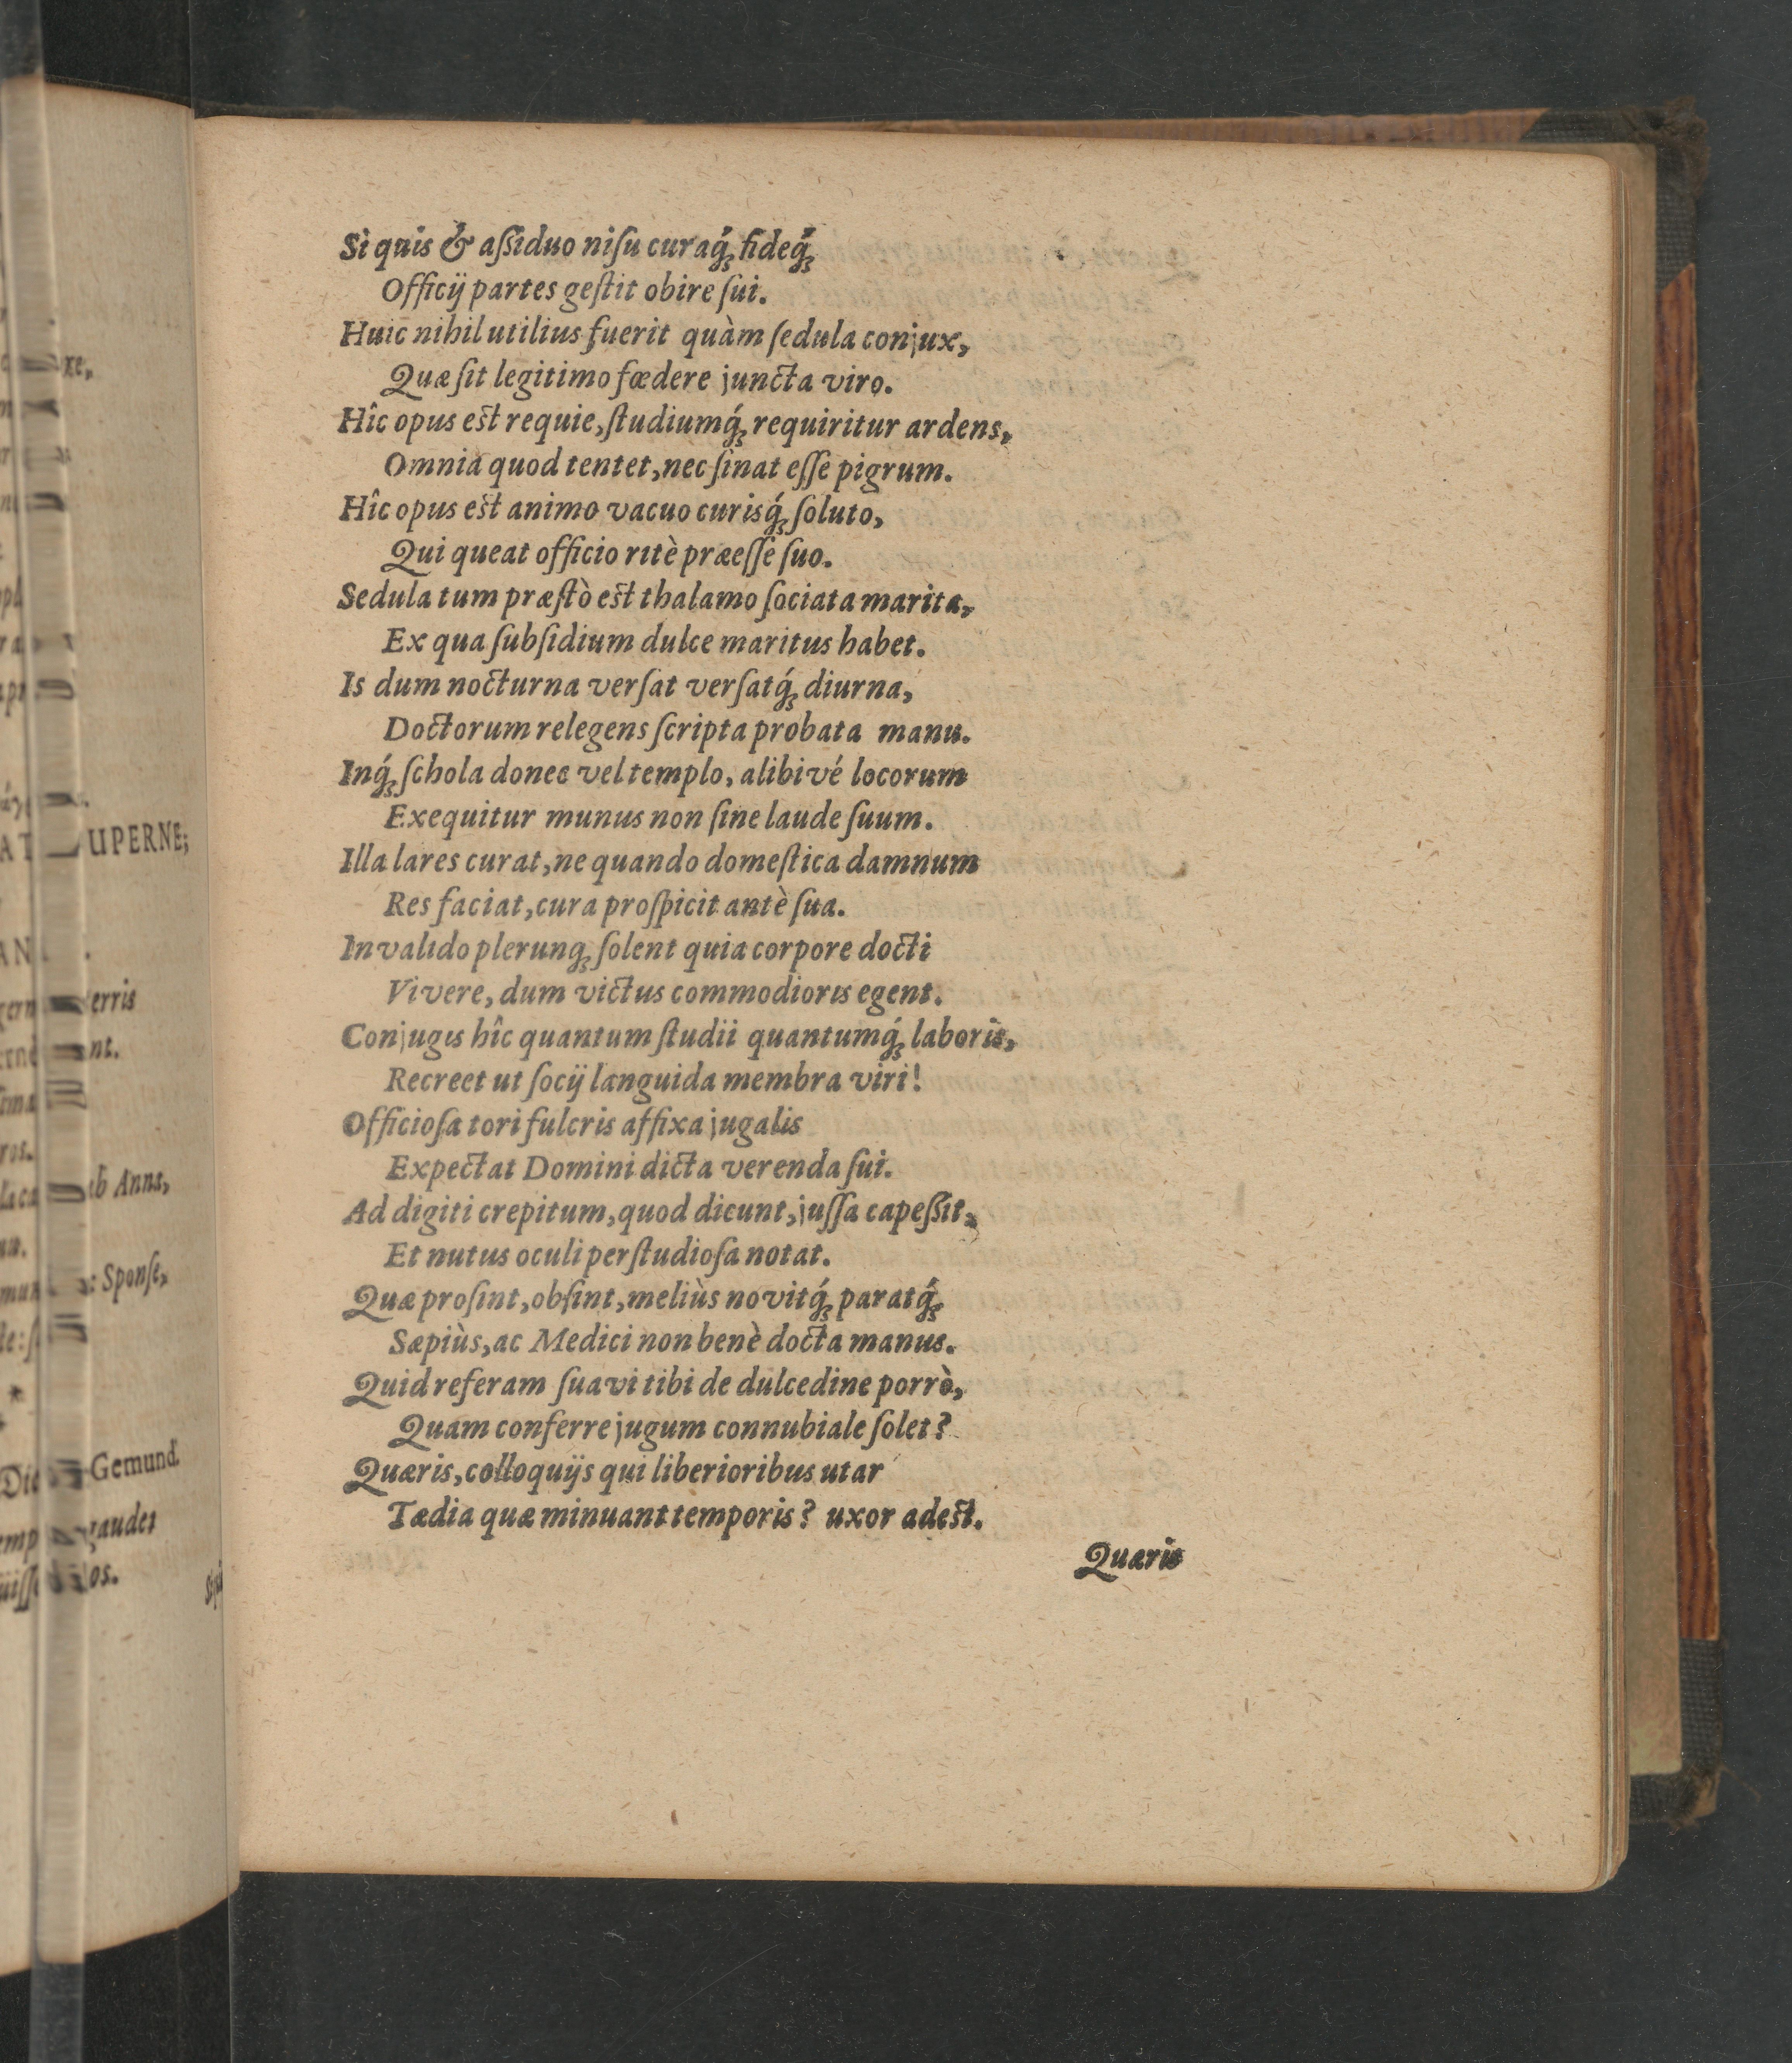 Si quis & aſſiduo niſu curaq́ꝫ fideq́ꝫ
Officij partes geſtit obire ſui.
Huic nihil utilius fuerit quàm ſedula conjux,
Quæ ſit legitimo fœdere juncta viro.
Hîc opus est requie, ſtudiumq́ꝫ requiritur ardens,
Omnia quod tentet, nec ſinat eſſe pigrum.
Hîc opus est animo vacuo curisq́ꝫ ſoluto,
Qui queat officio ritè præeſſe ſuo.
Sedula tum præſtò est thalamo ſociata marita,
Ex qua ſubſidium dulce maritus habet.
Is dum nocturna verſat verſatq́ꝫ diurna,
Doctorum relegens ſcripta probata manu.
Inq́ꝫ ſchola donec vel templo, alibivé locorum
Exequitur munus non ſine laude ſuum.
Illa lares curat, ne quando domeſtica damnum
Res faciat, cura proſpicit antè ſua.
Invalido plerunqꝫ ſolent quia corpore docti
Vivere, dum victus commodioris egent.
Conjugis hîc quantum ſtudii quantumq́ꝫ laboris,
Recreet ut ſocij languida membra viri!
Officioſa tori fulcris affixa jugalis
Expectat Domini dicta verenda ſui.
Ad digiti crepitum, quod dicunt, juſſa capeſſit,
Et nutus oculi perſtudioſa notat.
Quæ proſint, obſint, meliùs novitq́ꝫ paratq́ꝫ
Sæpiùs, ac Medici non benè docta manus.
Quid referam ſuavi tibi de dulcedine porrò,
Quam conferre jugum connubiale ſolet?
Quæris, colloquijs qui liberioribus utar
Tædia quæ minuant temporis? uxor adest.
Quæris
UPERNE;
erris
nt.
Anns,
: Sponſe,
Gemund.
gaudet
os.